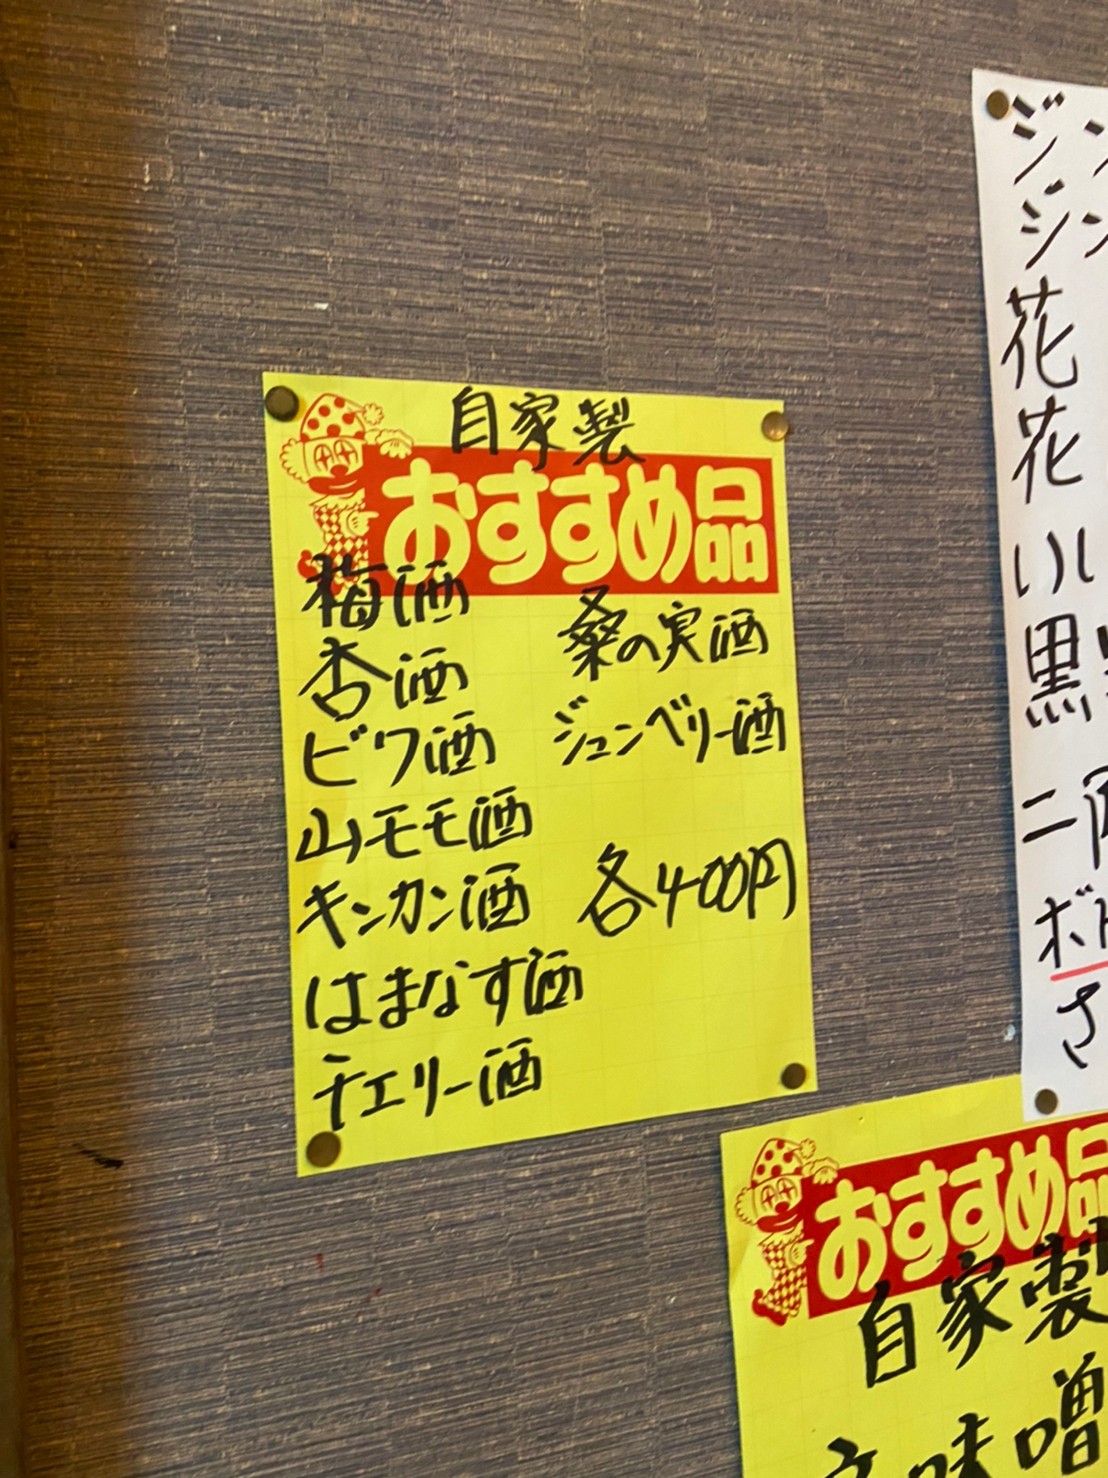 自家製
おすすめ品
梅酒
杏酒
ビワ酒
山モモ酒
キンカン酒
はまなす酒
チェリー酒
桑の実酒
ジューンベリー酒
各400円
ジン
ジン
花
花
い
黒
ニ
ボ
さ
おすすめ品
自家製
味噌